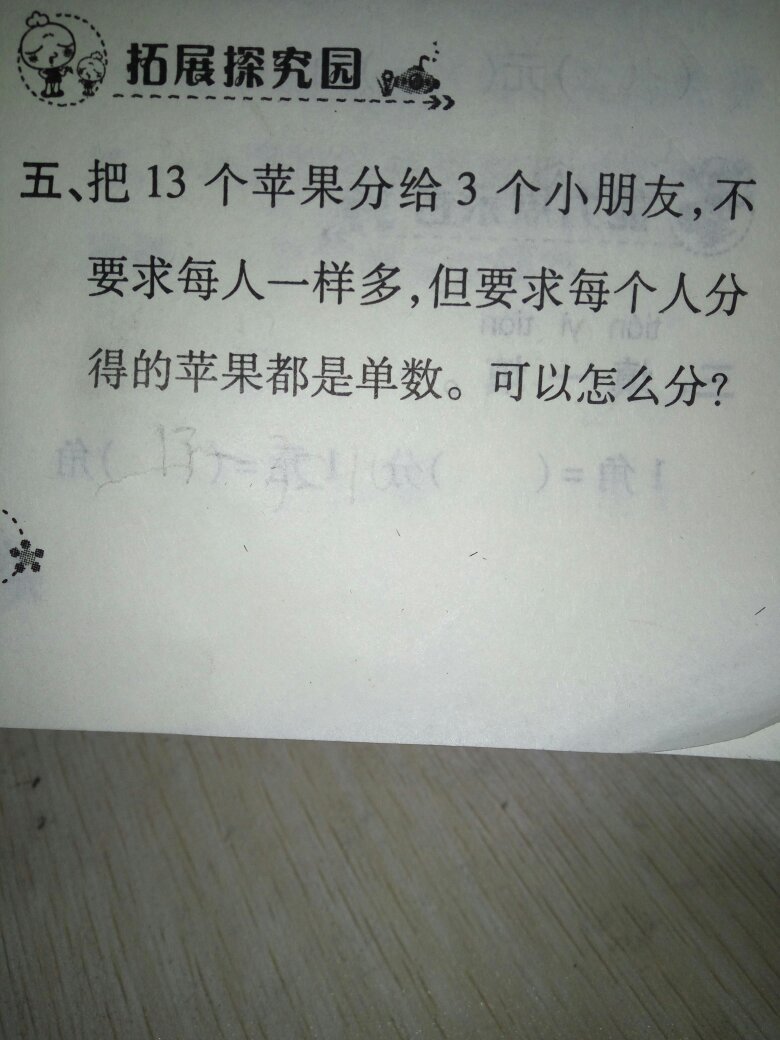 拓展探究园
五、把 13 个苹果分给 3 个小朋友,不
要求每人一样多,但要求每个人分
得的苹果都是单数。可以怎么分?